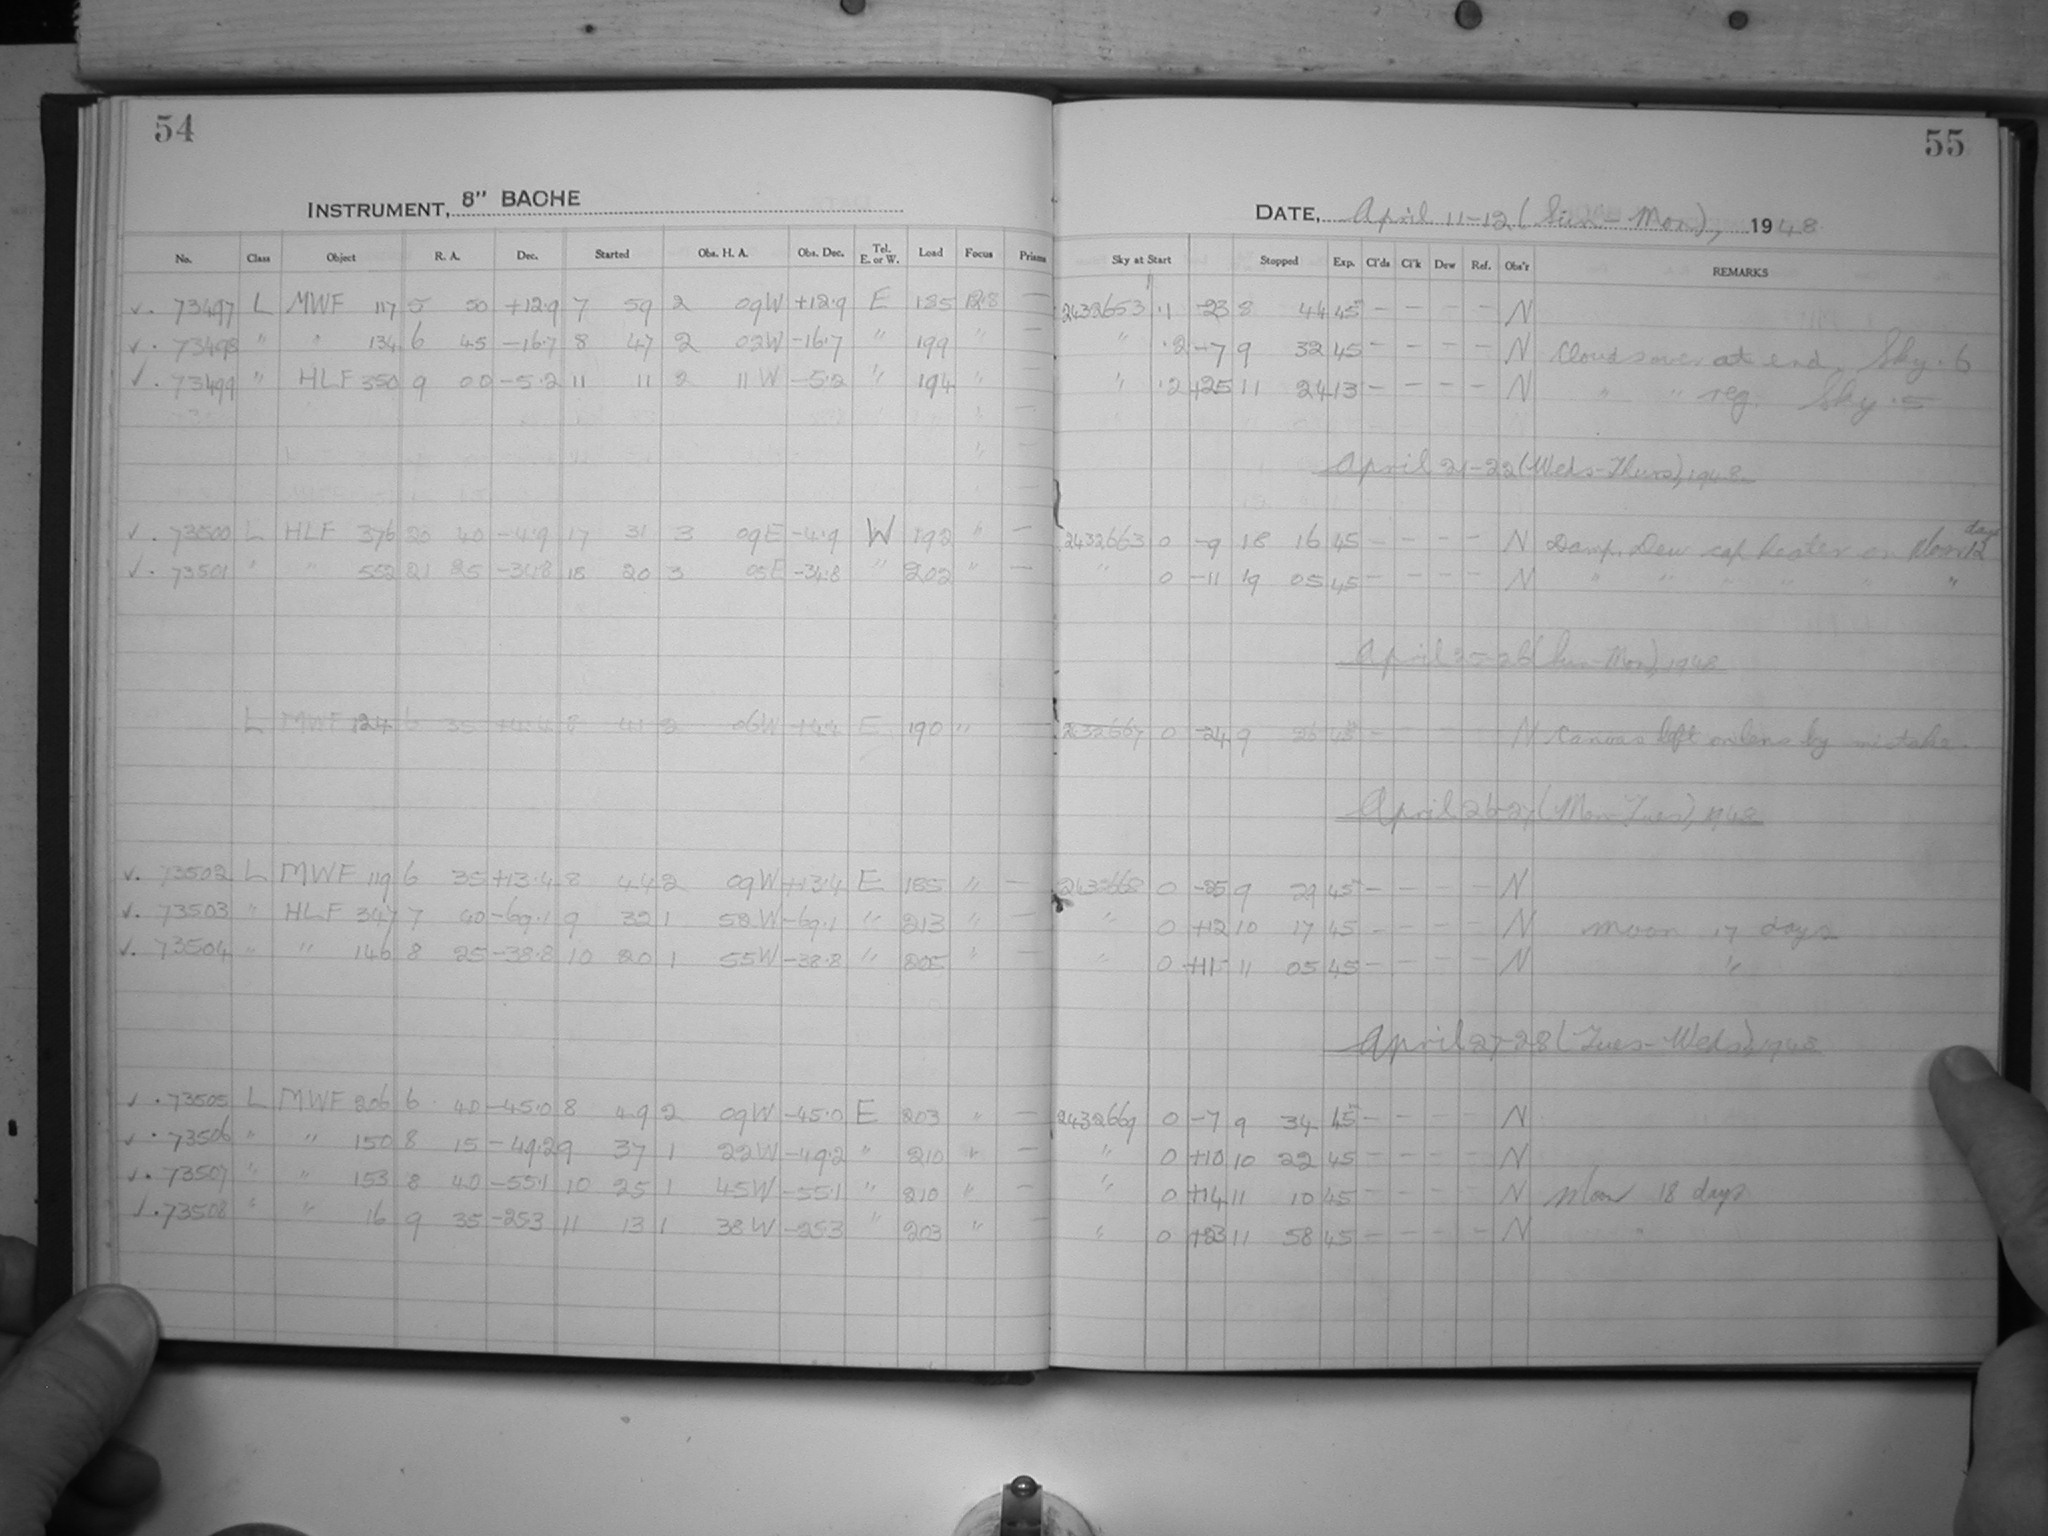 54
INSTRUMENT, 8" BACHE
No. Class Object R. A. Dec. Started Obs. H. A. Obs. Dec. Tel. E. or W. Load Focus Prisms
✓. 73497 L MWF 117 5 50 +12.9 7 59 2 09W +12.9 E 185 12.8 —
✓. 73498 " " 134 6 45 -16.7 8 47 2 02W -16.7 " 199 " —
✓. 73499 " HLF 350 9 00 -5.2 11 11 2 11W -5.2 " 194 " —
" —
" —
✓. 73500 L HLF 376 20 40 -4.9 17 31 3 09E -4.9 W 192 " —
✓. 73501 " " 552 21 25 -34.8 18 20 3 05E -34.8 " 202 " —
L MWF 124 6 35 +4.4 8 41 2 06W +4.4 E 190 " —
✓. 73502 L MWF 119 6 35 +13.4 8 44 2 09W +13.4 E 185 " —
✓. 73503 " HLF 347 7 40 -69.1 9 32 1 52W -69.1 " 213 " —
✓. 73504 " " 146 8 25 -38.8 10 20 1 55W -38.8 " 205 " —
✓. 73505 L MWF 206 6 40 -45.0 8 49 2 09W -45.0 E 203 " —
✓. 73506 " " 150 8 15 -49.2 9 37 1 22W -49.2 " 210 " —
✓. 73507 " " 153 8 40 -55.1 10 25 1 45W -55.1 " 210 " —
✓. 73508 " " 16 9 35 -25.3 11 13 1 38W -25.3 " 203 " —
55
DATE, April 11-12 (Sun - Mon), 1948
Sky at Start Stopped Exp. Cl'ds Cl'k Dew Ref. Obs'r REMARKS
2432653 .1 -23 8 44 45 - - - - N
" .2 -7 9 32 45 - - - - N Clouds over at end, Sky .6
" .2 +25 11 24 13 - - - - N " " reg. Sky .5
April 21-22 (Weds-Thurs), 1948
2432663 0 -9 18 16 45 - - - - N Damp. Dew cap heater on Moon 12 days
" 0 -11 19 05 45 - - - - N " " " " " "
April 25-26 (Sun-Mon), 1948
2432667 0 -24 9 26 45 - - - - N Canvas left on lens by mistake.
April 26-27 (Mon-Tues), 1948
2432668 0 -25 9 29 45 - - - - N
" 0 +12 10 17 45 - - - - N Moon 17 days
" 0 +15 11 05 45 - - - - N "
April 27-28 (Tues-Weds), 1948
2432669 0 -7 9 34 45 - - - - N
" 0 +10 10 22 45 - - - - N
" 0 +14 11 10 45 - - - - N Moon 18 days
" 0 +23 11 58 45 - - - - N "